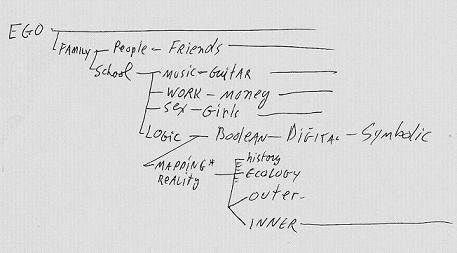 EGO
FAMILY - People - Friends
School - Music - Guitar
WORK - Money
Sex - Girls
LOGIC - Boolean - Digital - Symbolic
MAPPING* history
REALITY ECOLOGY
outer
INNER